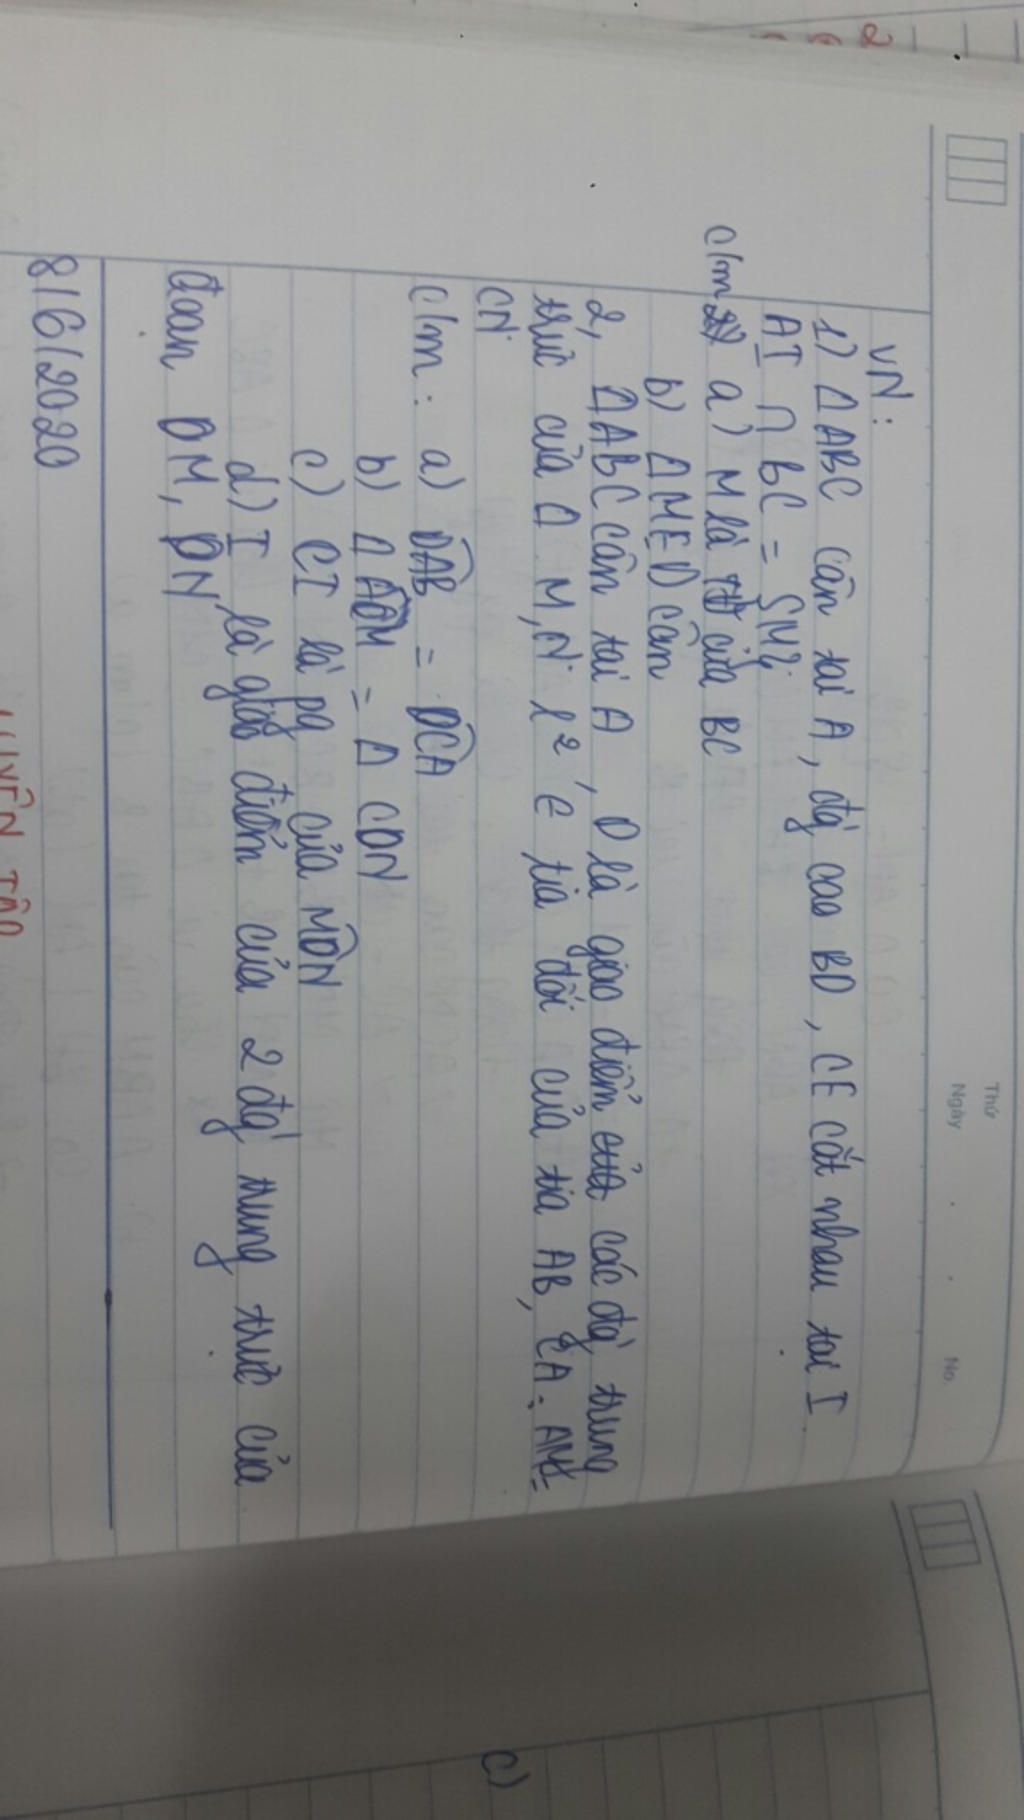 Thứ
Ngày
No.
VN:
1) Δ ABC cân tại A, đg cao BD, CE cắt nhau tại I
AI ∩ BC = {M}.
c/m a) M là TĐ của BC
b) Δ MED cân
2, Δ ABC cân tại A, D là giao điểm của các đg trung
trực của Δ. M, N l² ∈ tia đối của tia AB, CA: AM =
CN.
c/m: a) DAB = DCA
b) Δ ADM = Δ CDN
c) CI là pg của MDN
d) I là giao điểm của 2 đg trung trực của
đoạn DM, DN
8/6/2020
c)